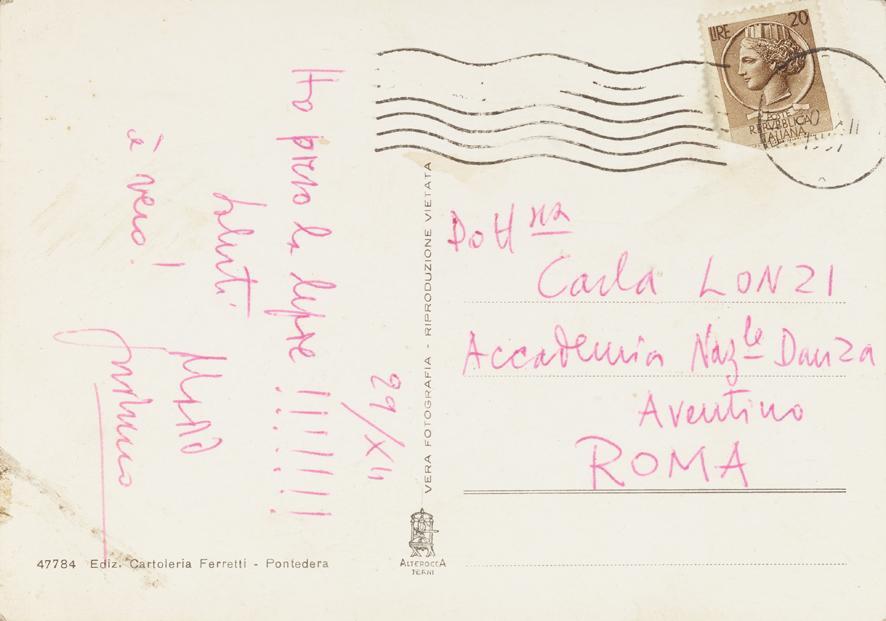 Ho preso la lepre !!!!!!!
Saluti
è vero!
29/XII
VERA FOTOGRAFIA - RIPRODUZIONE VIETATA
LIRE 20
POSTE
REPVBBLICA
ITALIANA
Dott ssa
Carla LONZI
Accademia Naz le Danza
Aventino
ROMA
47784 Ediz. Cartoleria Ferretti - Pontedera
ALTEROCCA
TERNI